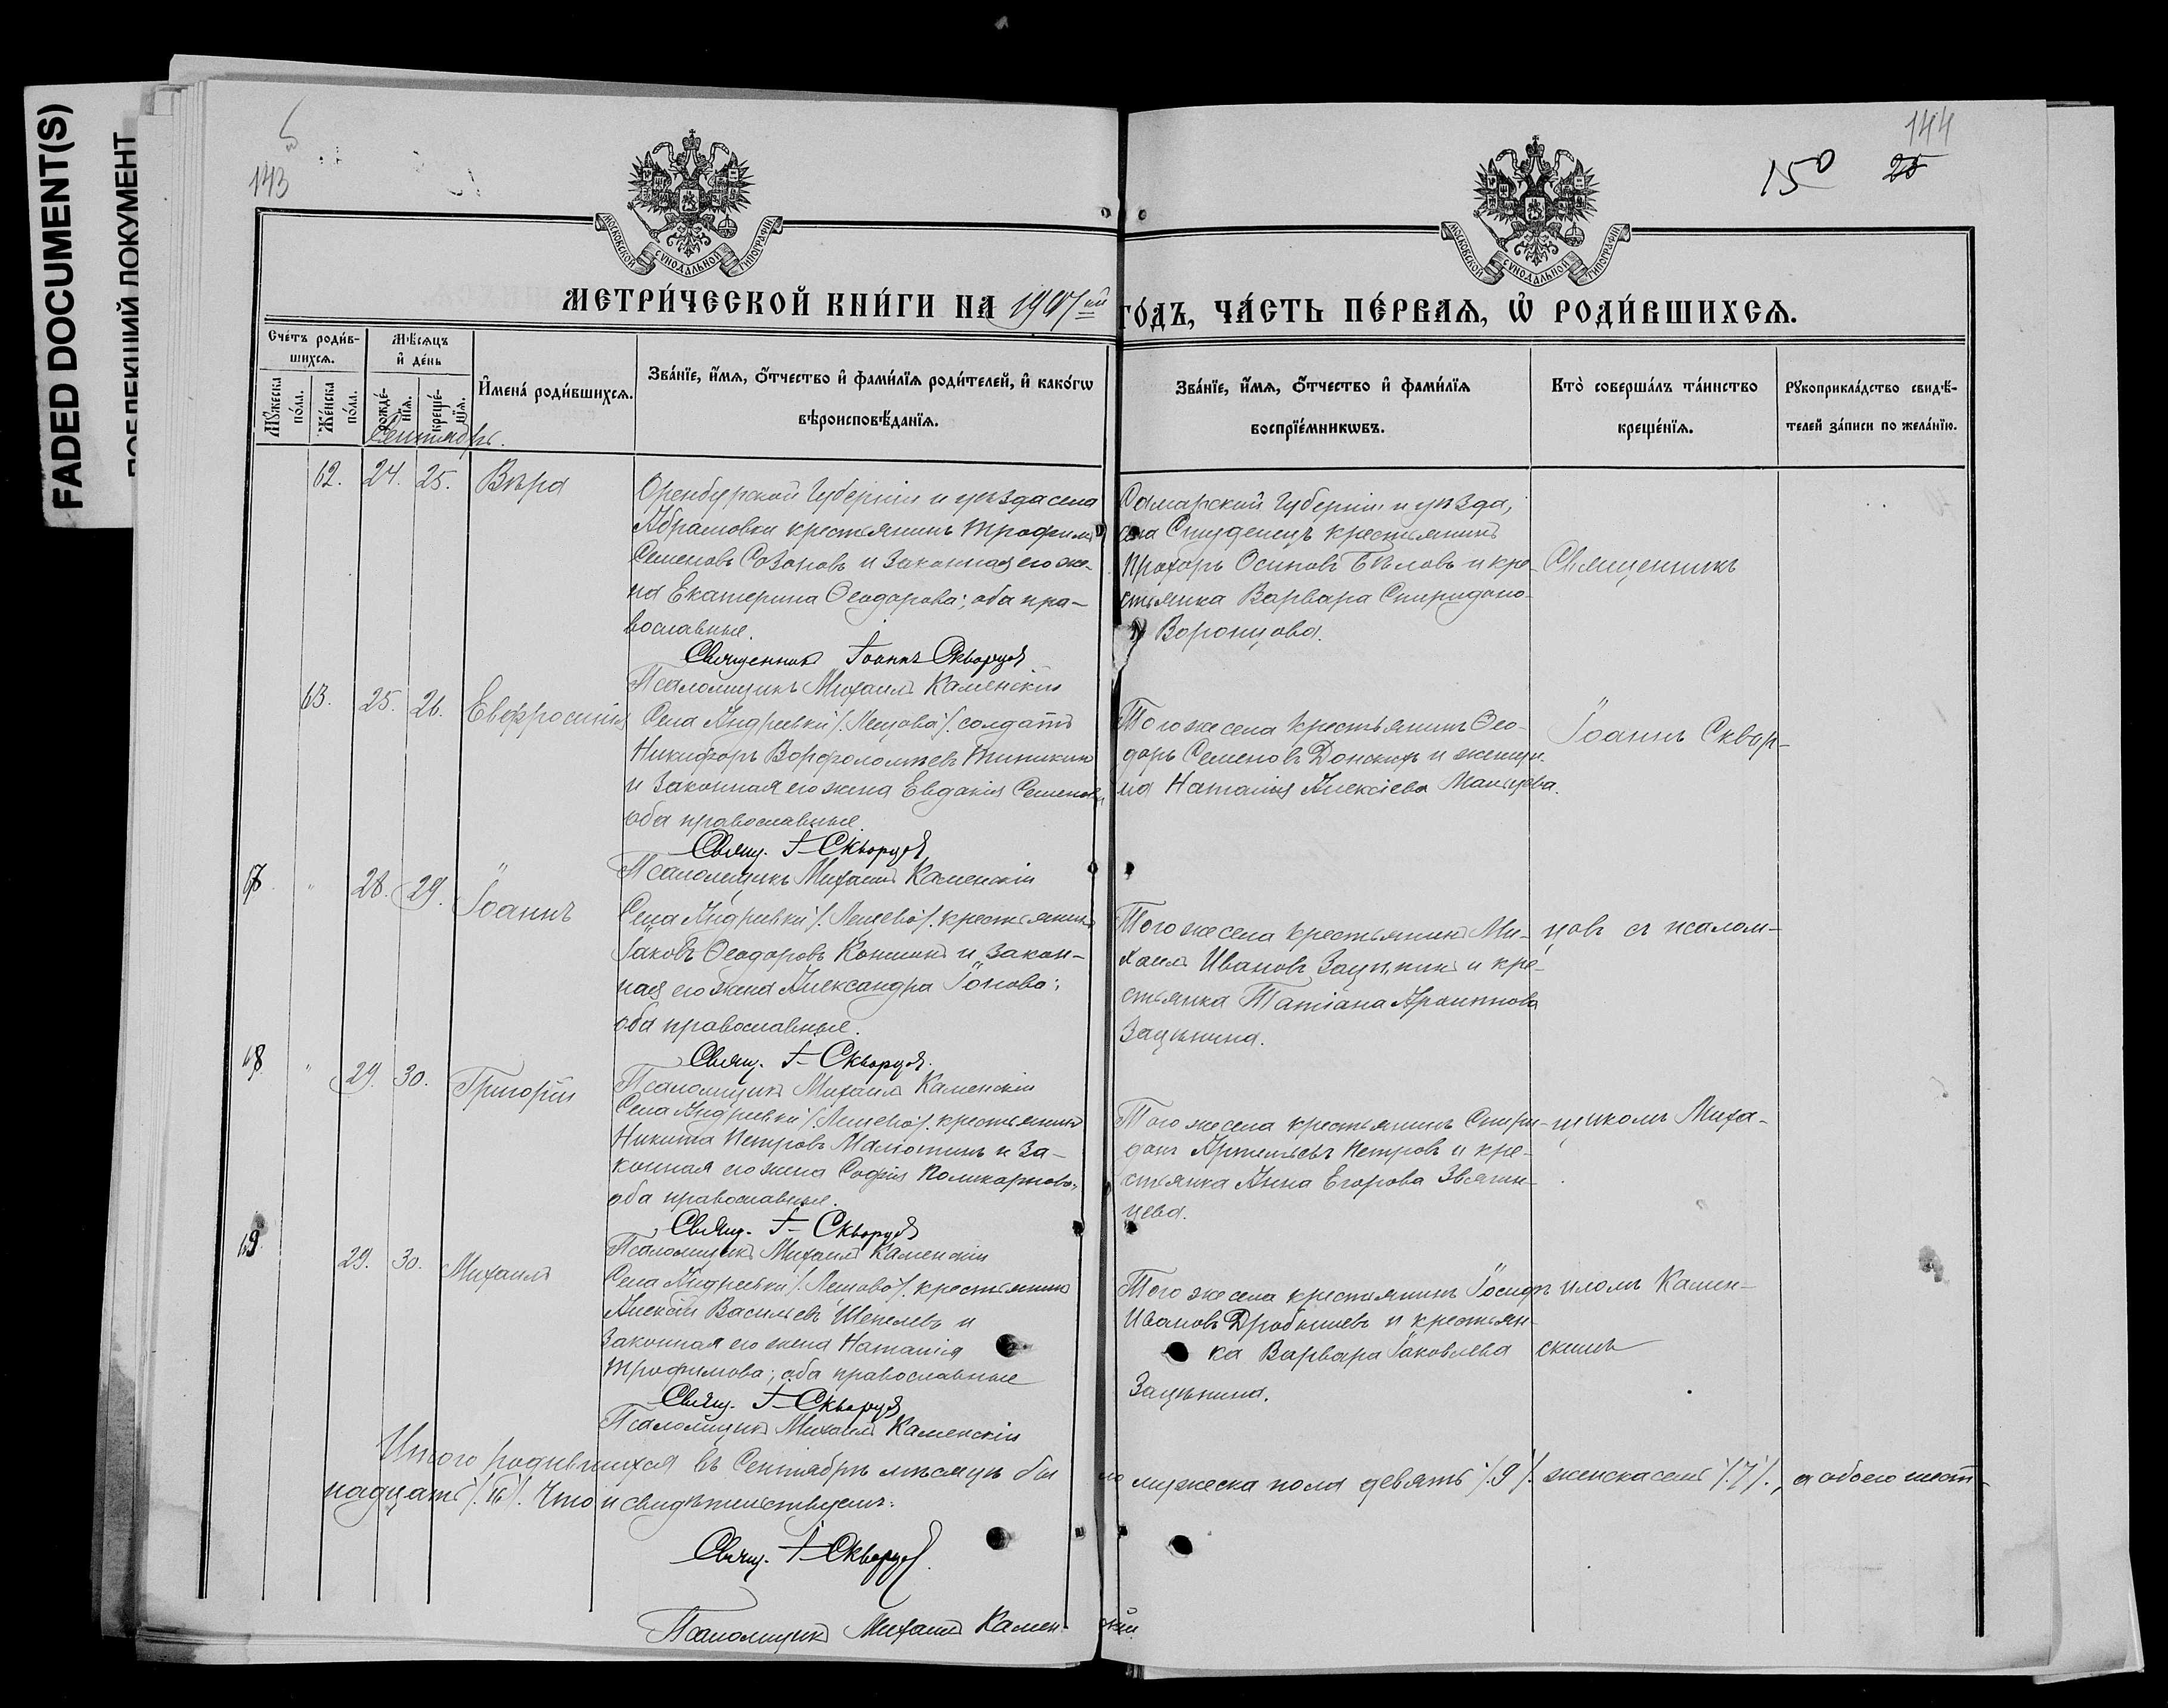 FADED DOCUMENT(S)
143
144
150
25
МОСКОВСКОЙ СѴНОДАЛЬНОЙ ТИПОГРАФІИ
МОСКОВСКОЙ СѴНОДАЛЬНОЙ ТИПОГРАФІИ
МЕТРИ́ЧЕСКОЙ КНИ́ГИ НА 1907ый ГО́ДЪ, ЧА́СТЬ ПЕ́РВАѦ, Ѽ РОДИ́ВШИХСѦ.
Сче́тъ роди́в-
шихсѧ.
Мѣ́сѧцъ
и҆ де́нь
Мꙋ́жеска
по́ла.
Же́нска
по́ла.
рожде́-
нїѧ.
креще́-
нїѧ.
И҆мена̀ роди́вшихсѧ.
Зва́нїе, и҆́мѧ, ѻ҆́тчество и҆ фами́лїѧ роди́телей, и҆ како́гѡ
вѣроисповѣ́данїѧ.
Зва́нїе, и҆́мѧ, ѻ҆́тчество и҆ фами́лїѧ
воспрїе́мникѡвъ.
Кто̀ соверша́лъ та́инство
креще́нїѧ.
Рꙋкоприкла́дство свидѣ́-
телей за́писи по жела́нїю.
Сентябрь.
62. 24. 25. Вѣра
Оренбурской Губерніи и уѣзда села
Абрамовки крестьянинъ Трофимъ
Семеновъ Созоновъ и законная его же-
на Екатерина Ѳеодорова; оба пра-
вославные.
Священникъ Іоаннъ Скворцовъ
Псаломщикъ Михаилъ Каменскій
Самарской Губерніи и уѣзда,
села Студенецъ крестьянинъ
Прохоръ Осиповъ Бѣловъ и кре-
стьянка Варвара Спиридоно-
Воронцова.
Священникъ
63. 25. 26. Евфросинія
Села Андреевки /. солдатъ
Никифоръ Ворфоломѣевъ
и законная его жена Евдакія Семенова
оба православные.
Свящ. І. Скворцовъ
Псаломщикъ Михаилъ Каменскій
Того же села крестьянинъ Ѳео-
доръ Семеновъ Донскихъ и женщи-
на Наталія Алексіева Мальцева.
Іоаннъ Сквор-
67 " 28. 29. Іоаннъ
Села Андреевки /. крестьянинъ
Іаковъ Ѳеодоровъ Коншинъ и закон-
ная его жена Александра Іонова;
оба православные.
Свящ. І. Скворцовъ
Псаломщикъ Михаилъ Каменскій
Того же села крестьянинъ Ми-
хаилъ Ивановъ Зацѣпинъ и кре-
стьянка Татіана
Зацѣпина.
цовъ съ псалом-
68 " 29. 30. Григорій
Села Андреевки /. крестьянинъ
Никита Петровъ Малютинъ и за-
конная его жена Софія Поликарпова;
оба православные.
Свящ. І. Скворцовъ
Псаломщикъ Михаилъ Каменскій
Того же села крестьянинъ Спири-
донъ Артемьевъ Петровъ и кре-
стьянка Анна Егорова Звягин-
цева.
щикомъ Миха-
69 29. 30. Михаилъ
Села Андреевки /. крестьянинъ
Алексій Васильевъ Шепелевъ и
законная его жена Наталія
Трофимова; оба православные
Свящ. І. Скворцовъ
Псаломщикъ Михаилъ Каменскій
Того же села крестьянинъ Іосифъ
Ивановъ Дробышевъ и крестьян-
ка Варвара Іаковлева
Зацѣпина.
иломъ Камен-
скимъ
Итого родившихся въ Сентябрѣ мѣсяцѣ было мужеска пола девять /. 9 /. женска семь /. 7 /., а обоего шест-
надцать /. 16 /. Что и свидѣтельствуемъ:
Свящ. І. Скворцовъ
Псаломщикъ Михаилъ Каменскій